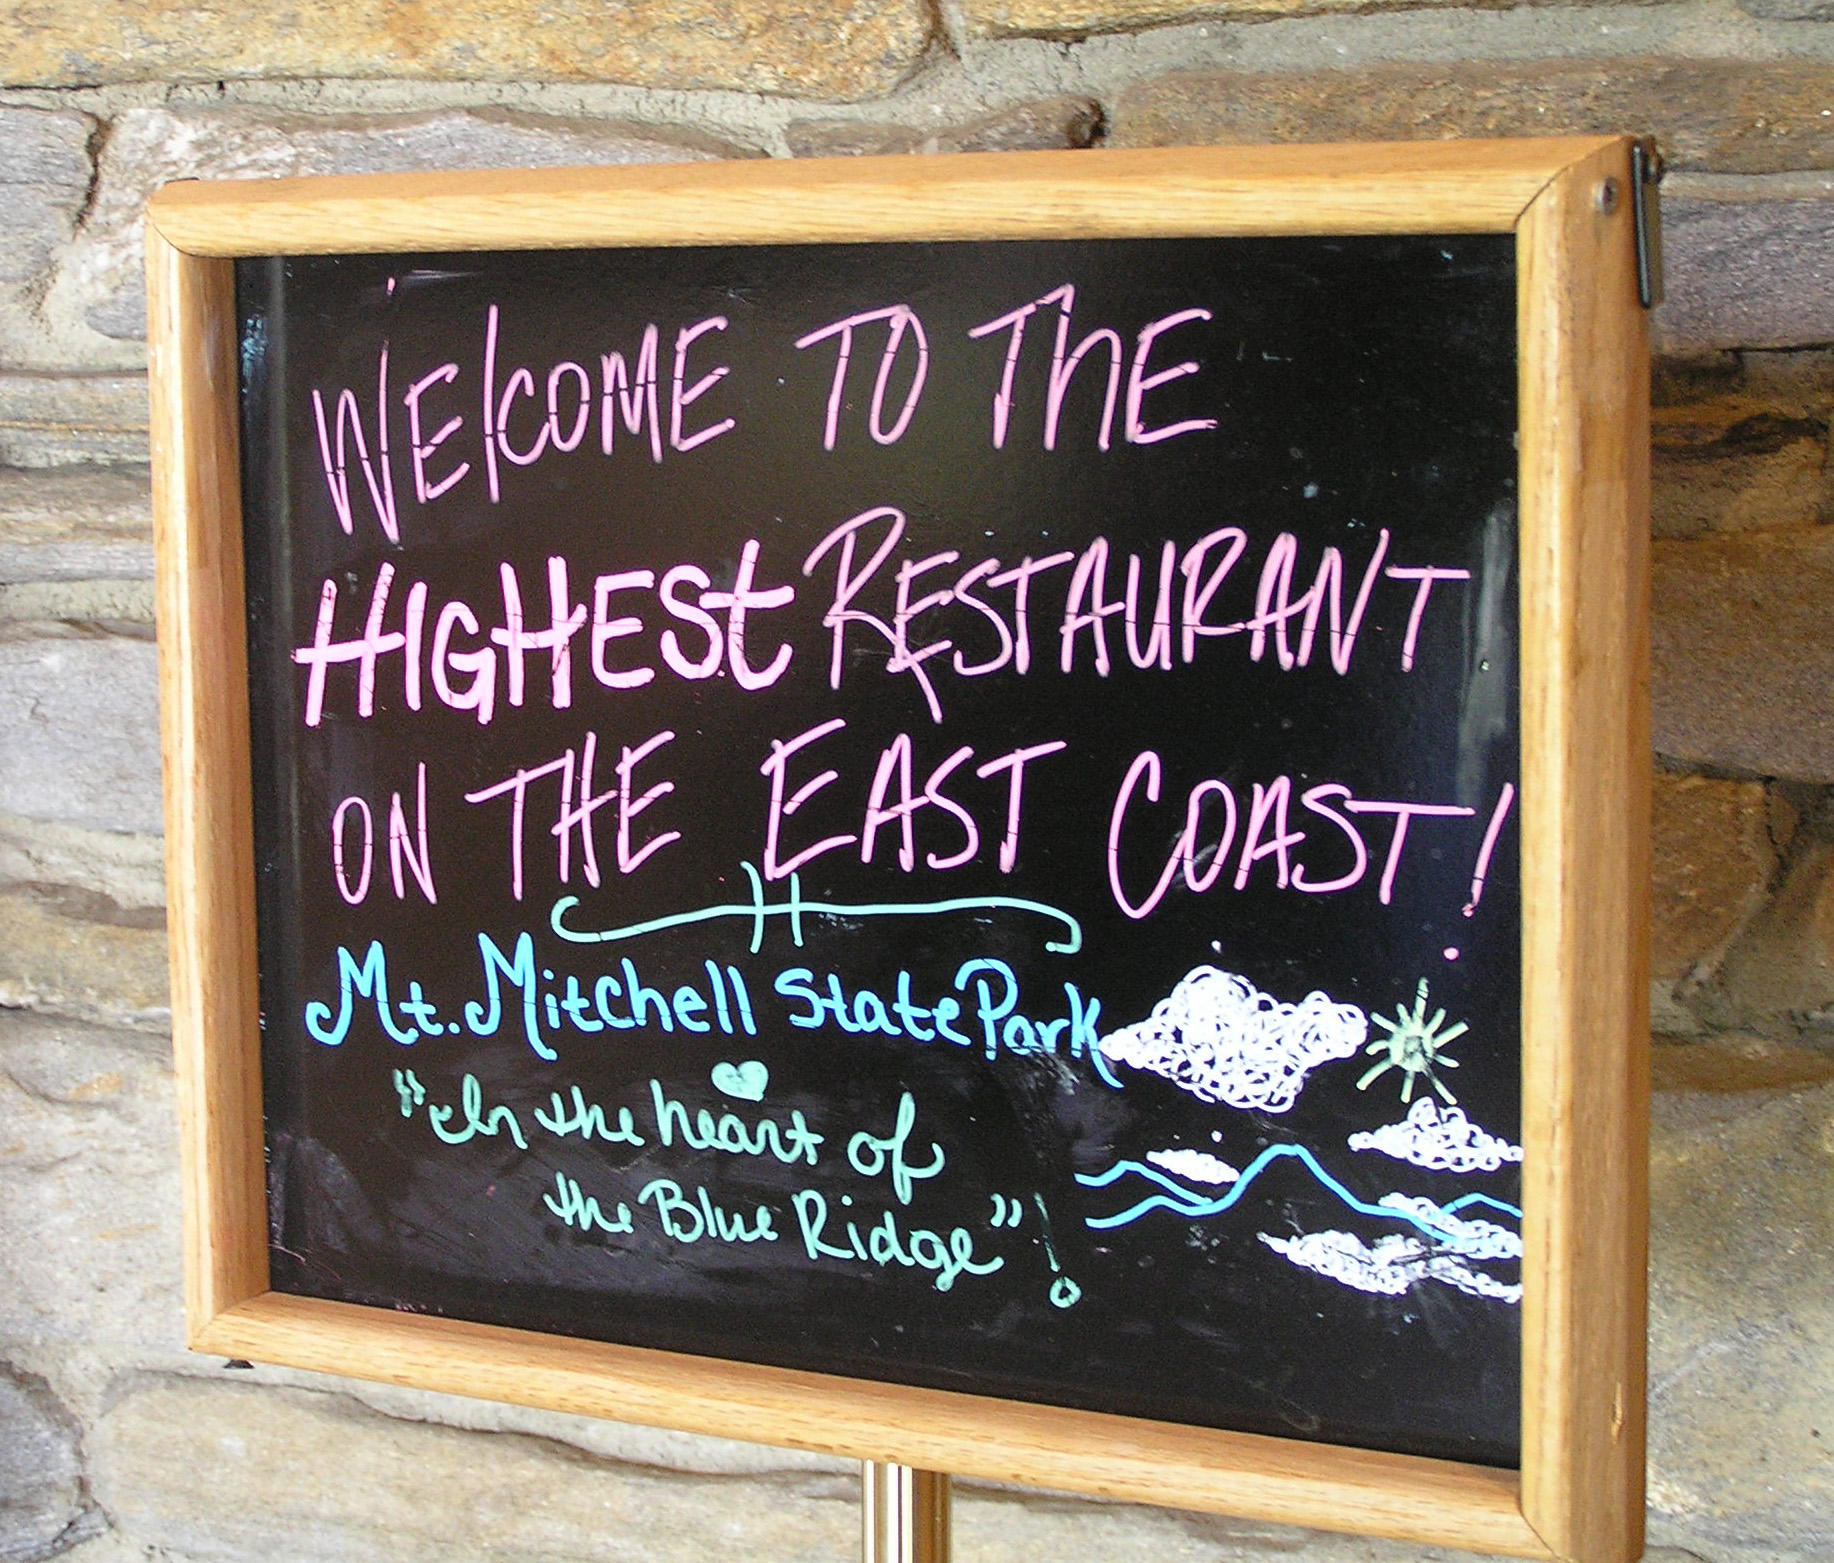 WElcOME TO ThE
HIGHESt RESTAURANT
ON THE EAST COAST!
Mt. Mitchell State Park
"In the heart of
the Blue Ridge"!